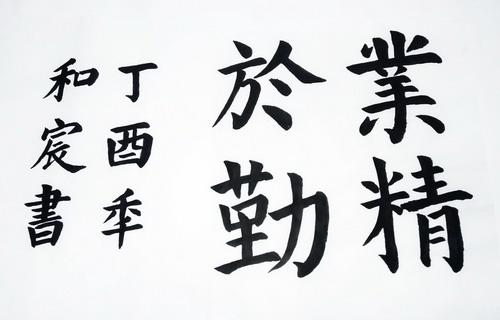 業精
於勤
丁酉秊
和宸書